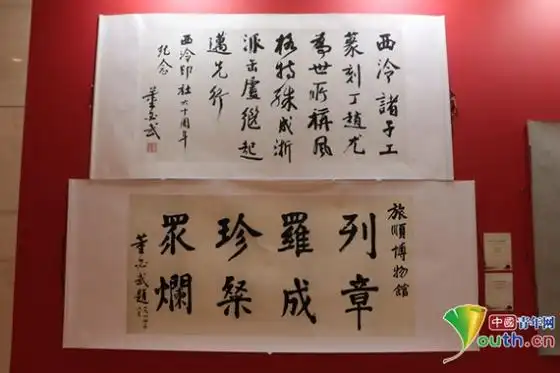 西泠諸子工
篆刻丁趙尤
為世所稱風
格特殊成浙
派缶廬繼起
邁先行
西泠印社六十周年
紀念
董必武
旅順博物館
眾珍羅列
爛粲成章
董必武題
中国青年网
Youth.cn